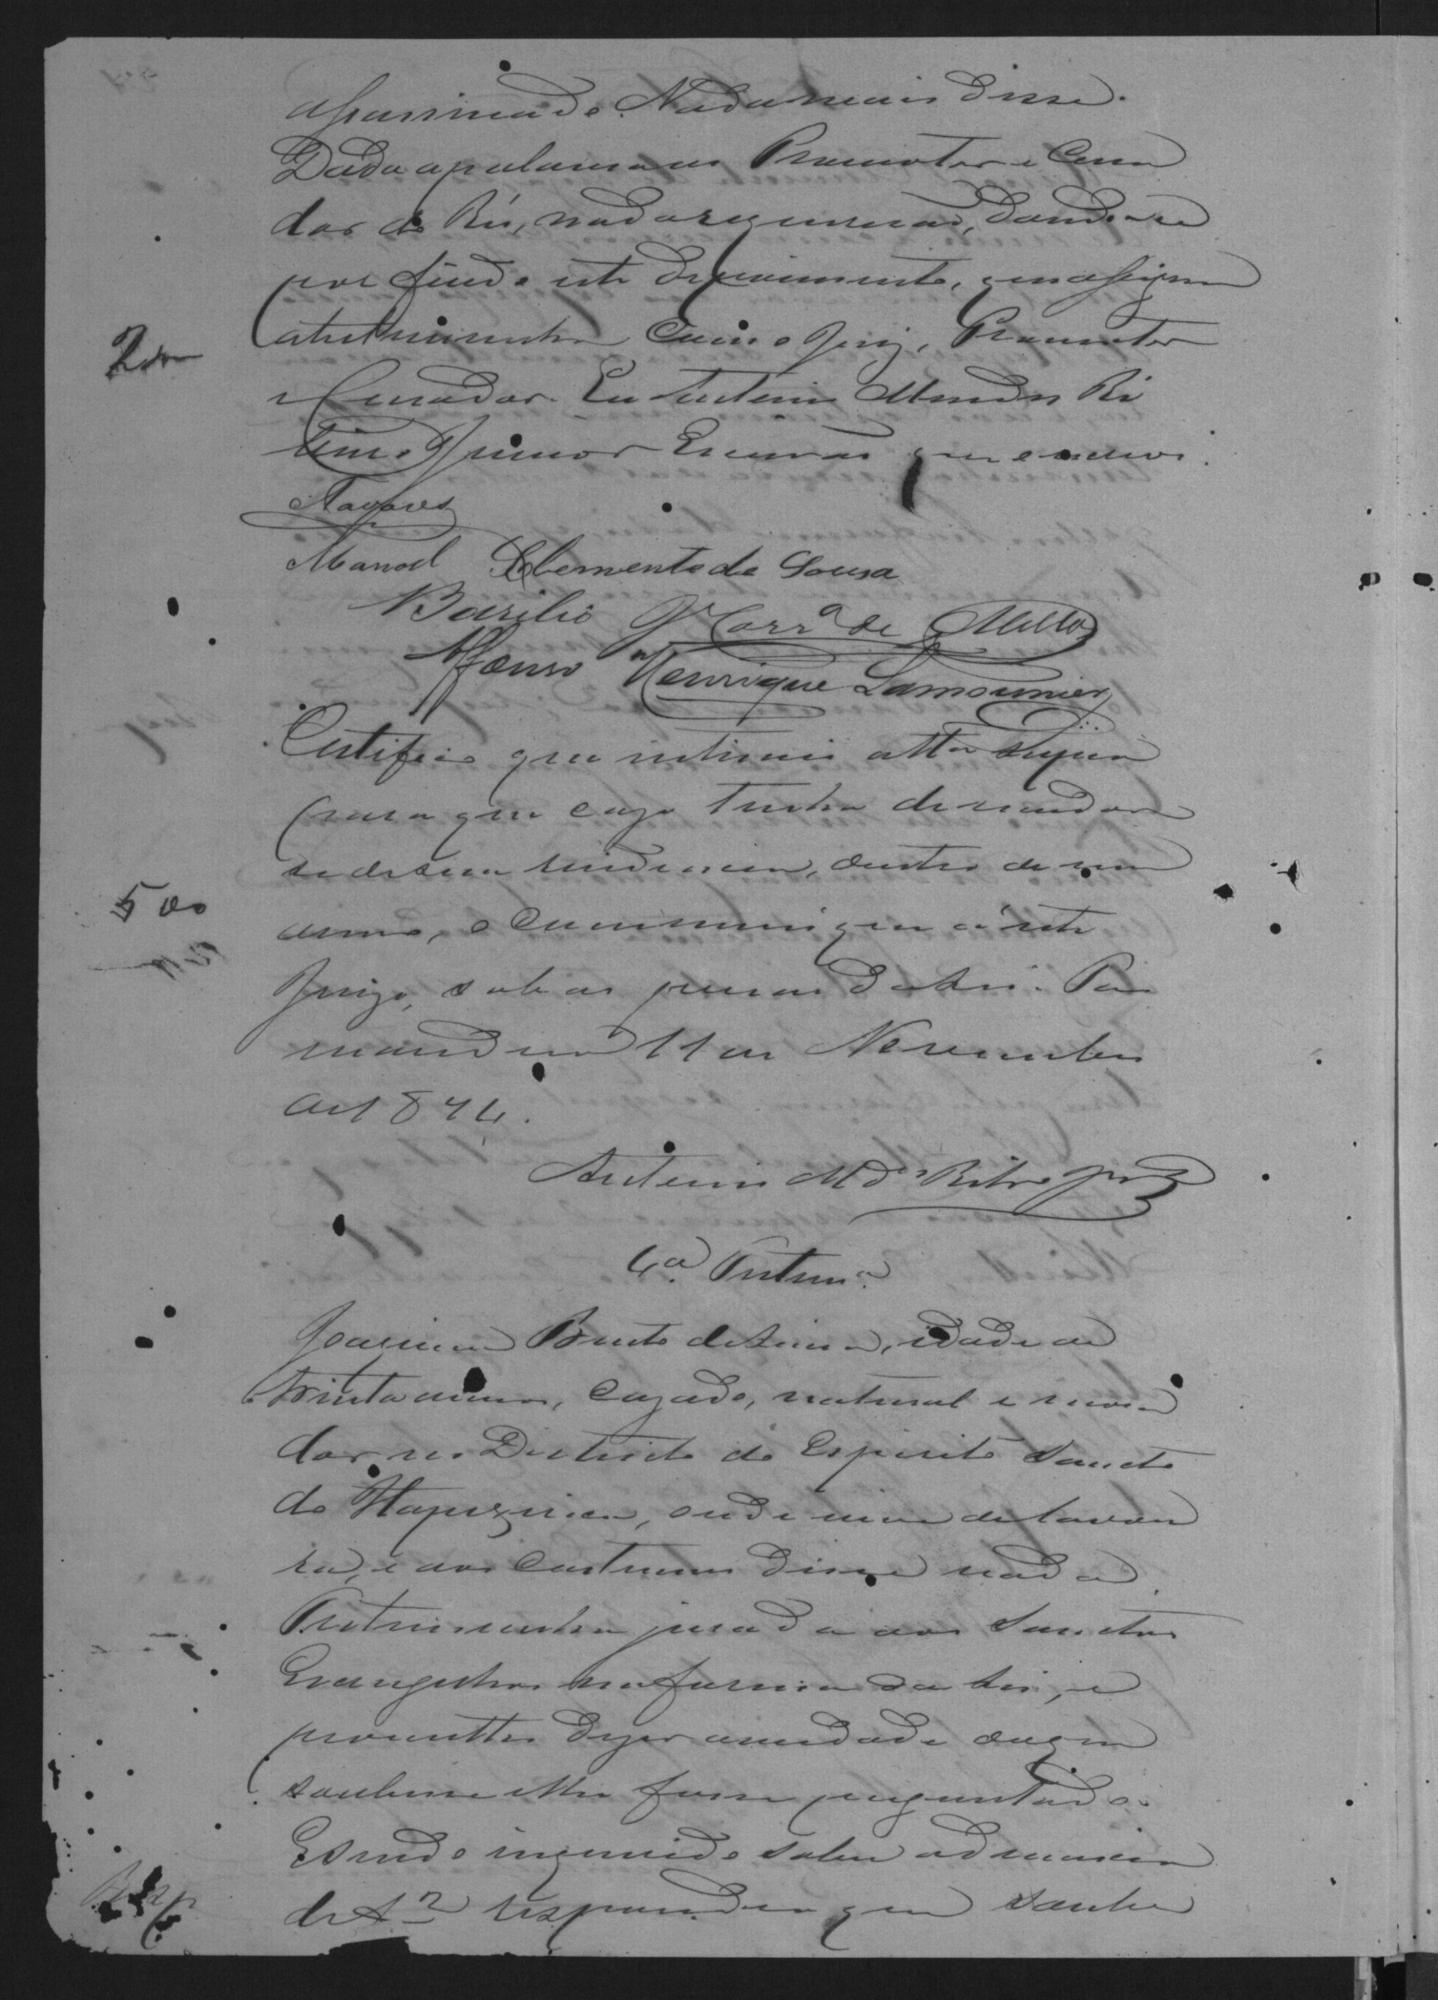 assassinado. Nada mais disse.
Dada a palavra ao Promotor e Cura
dor do Réu, nada requererão, dando-se
por findo este depoimento, que assigna
a testimunha com o Juiz, Promotor
2000
e Curador. Eu Antonio Mendes Ri
beiro Junior Escrivão que escrevi.
Tavares
Manoel Clemente de Sousa
Basilio Jr Corrª de Mello
Affonso Henrique Lamounier
Certifico que intimei a ttª supra
para que caso tenha de mudar
se de sua residencia, dentro de um
500
anno, o communique a este
Juizo, sob as penas da Lei.
11 de Novembro
de 1874.
Antonio Mdes Ribro Jor
4ª Testemª
Joaquim Bento de Lima, idade de
trinta annos, cazado, natural e mora
dor no Districto do Espirito Sancto
de Itapecirica, onde vive de lavou
ra, e aos costumes disse nada.
Testimunha jurada aos Sanctos
Evangelhos na forma da Lei, e
prometteo dizer a verdade do que
soubesse e lhe fosse perguntado.
E sendo inquirido sobre a denuncia
de f. 2 respondeo que sabe